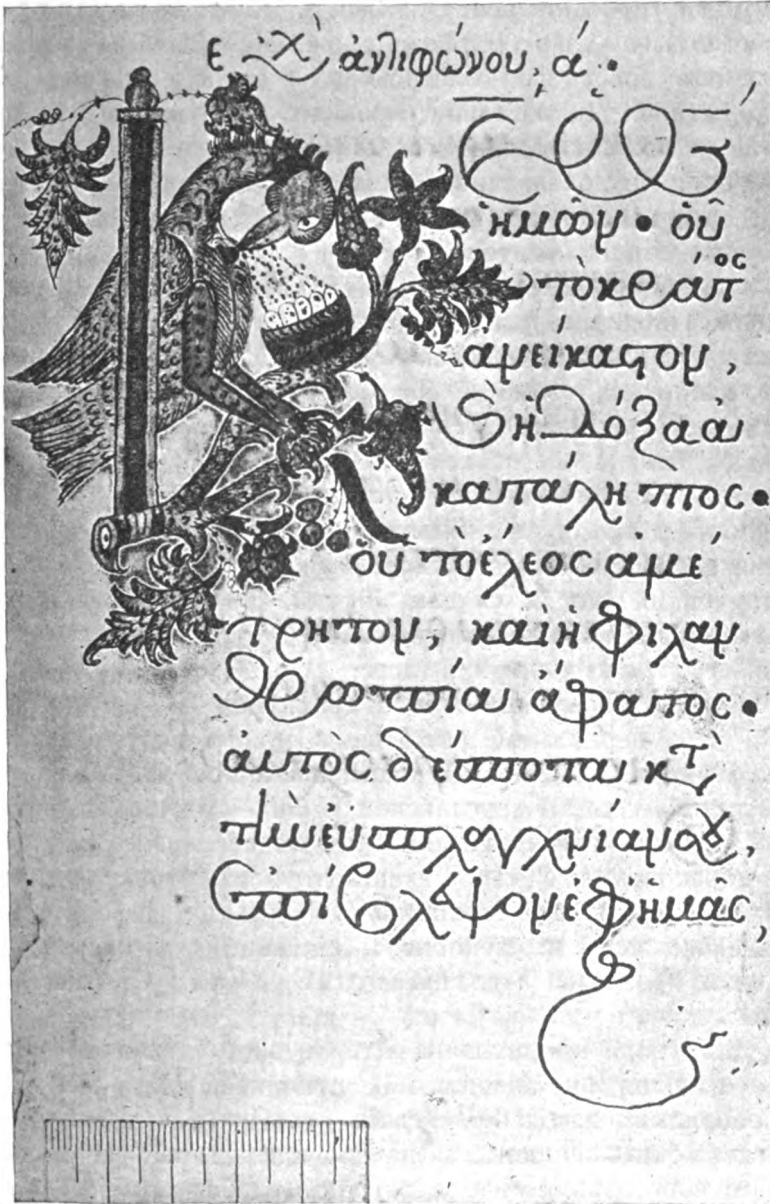 εὐχὴ ἀντιφώνου, α´.
Κε̄ ὁ Θς̄
ἡμῶν • οὗ
τὸ κράτος
ἀνείκαστον,
καὶ ἡ δόξα ἀ
κατάληπτος •
οὗ τὸ ἔλεος ἀμέ
τρητον, καὶ ἡ φιλαν
θρωπία ἄφατος •
αὐτὸς δέσποτα κτ̀
τὴν εὐσπλαγχνίαν σου,
ἐπίβλεψον ἐφ ἡμᾶς,